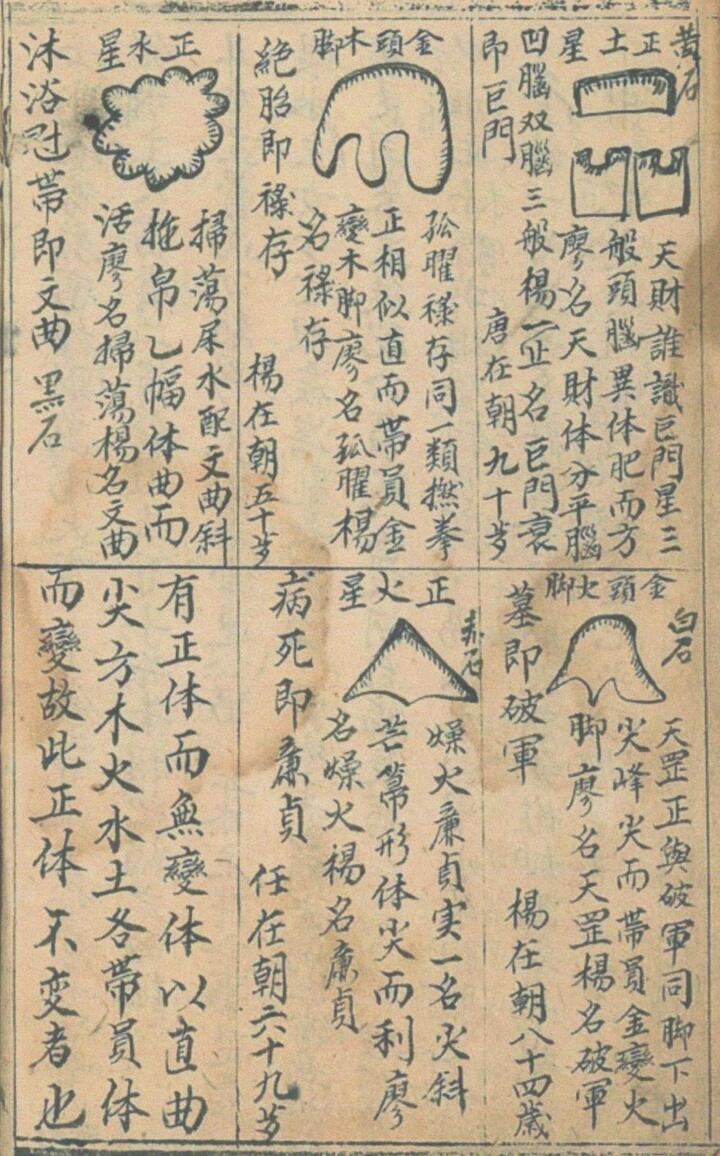 黃石
正土星
天財誰識巨門星三
般頭腦異体肥而方
廖名天財体分平腦
凹腦双腦三般楊一正名巨門衰
即巨門
唐在朝九十歩
金頭木脚
孤曜祿存同一類撚拳
正相似直而帶員金
變木脚廖名孤曜楊
名祿存
絕胎即祿存
楊在朝五十歩
正水星
掃蕩屎水配文曲斜
拖帛乙幅体曲而
活廖名掃蕩楊名文曲
沐浴冠帶即文曲 黑石
白石
金頭火脚
天罡正與破軍同脚下出
尖峰尖而帶員金變火
脚廖名天罡楊名破軍
墓即破軍
楊在朝八十四歲
赤石
正火星
燥火亷貞实一名火斜
芒篱形体尖而利廖
名燥火楊名亷貞
病死即亷貞
任在朝六十九歩
有正体而無變体以直曲
尖方木火水土各帶員体
而變故此正体不变者也